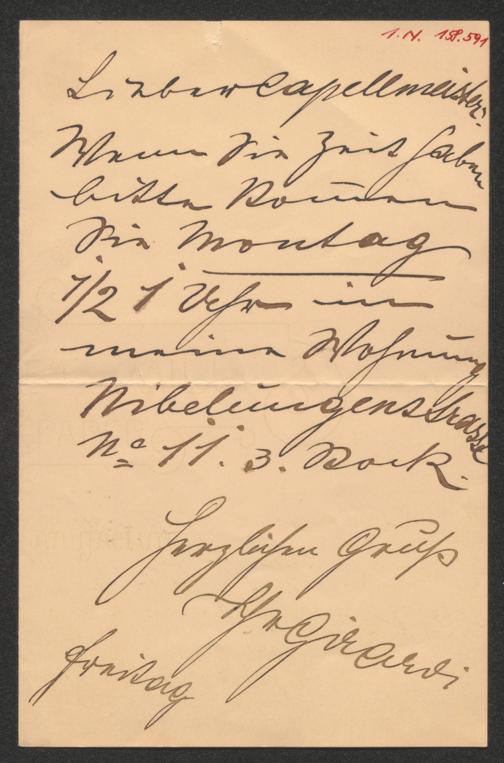 I.N. 158.591
Lieber Capellmeister.
Wenn Sie Zeit haben
bitte kom̄en
Sie Montag
1/2 1 Uhr in
meine Wohnung
Nibelungenstrasse
No 11. 3. Stock.
Herzlichen Gruß
Ihr Girardi
Freitag